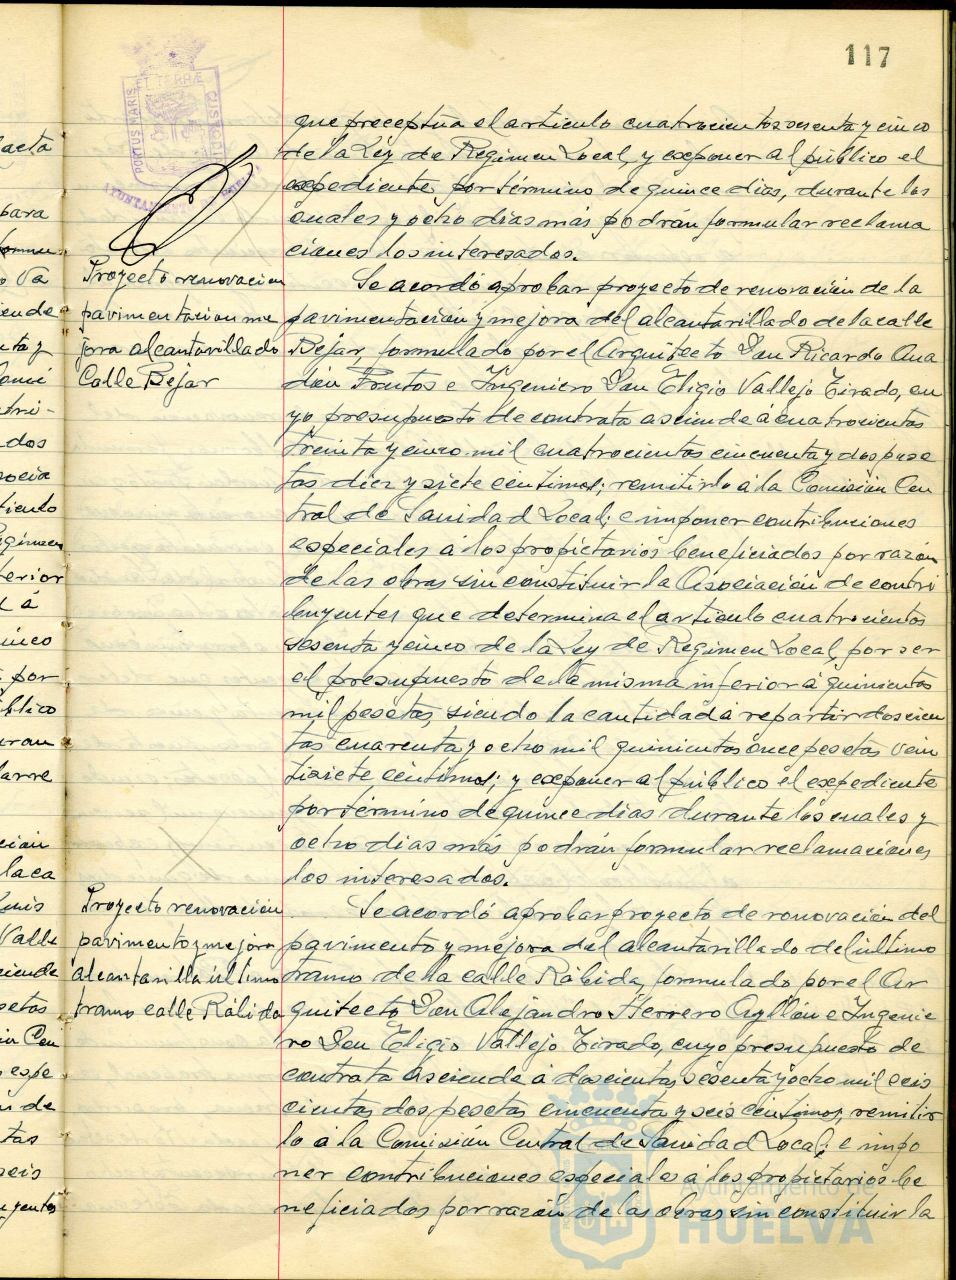 117
que preceptúa el artículo cuatrocientos sesenta y cinco
de la Ley de Regimen Local, y exponer al público el
expediente, por término de quince dias, durante los
cuales y ocho dias más podrán formular reclama
ciones los interesados.
Proyecto renovacion
pavimentacion me
jora alcantarillado
Calle Bejar
Se acordó aprobar proyecto de renovación de la
pavimentación y mejora del alcantarillado de la calle
Bejar, formulado por el Arquitecto Don Ricardo Ana
dón Frutos e Ingeniero Don Eligio Vallejo Tirado, cu
yo presupuesto de contrata asciende á cuatrocientas
treinta y cinco mil cuatrocientas cincuenta y dos pese
tas diez y siete céntimos; remitirlo á la Comisión Cen
tral de Sanidad Local; e imponer contribuciones
especiales á los propietarios beneficiados por razón
de las obras sin constituir la Asociación de contri
buyentes que determina el artículo cuatrocientos
sesenta y cinco de la Ley de Regimen Local, por ser
el presupuesto de la misma inferior á quinientas
mil pesetas, siendo la cantidad á repartir doscien
tas cuarenta y ocho mil quinientas once pesetas vein
tisiete céntimos; y exponer al público el expediente
por término de quince dias durante los cuales y
ocho dias más podrán formular reclamaciones
los interesados.
Proyecto renovación
pavimento y mejora
alcantarilla último
tramo calle Rábida
Se acordó aprobar proyecto de renovación del
pavimento y mejora del alcantarillado del último
tramo de la calle Rábida, formulado por el Ar
quitecto Don Alejandro Herrero Ayllón e Ingenie
ro Don Eligio Vallejo Tirado, cuyo presupuesto de
contrata asciende á doscientas sesenta y ocho mil seis
cientas dos pesetas cincuenta y seis céntimos, remitir
lo á la Comisión Central de Sanidad Local; e impo
ner contribuciones especiales á los propietarios be
neficiados por razón de las obras sin constituir la
Ayuntamiento de
HUELVA